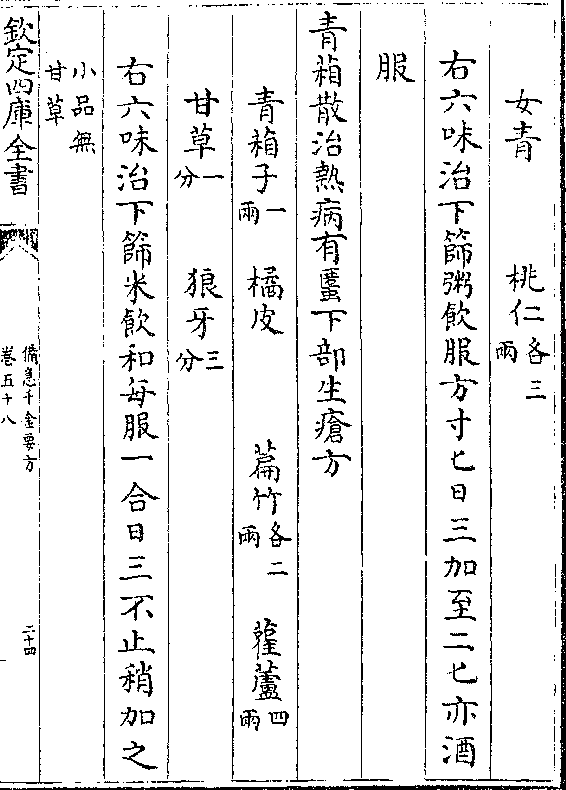 女青 桃仁各三兩
右六味治下篩粥飲服方寸匕日三加至二匕亦酒
服
青葙散治熱病有䘌下部生瘡方
青葙子一兩 橘皮 萹竹各二兩 雚蘆四兩
甘草一分 狼牙三分
右六味治下篩米飲和每服一合日三不止稍加之
小品無甘草
欽定四庫全書
備急千金要方
卷五十八
二十四